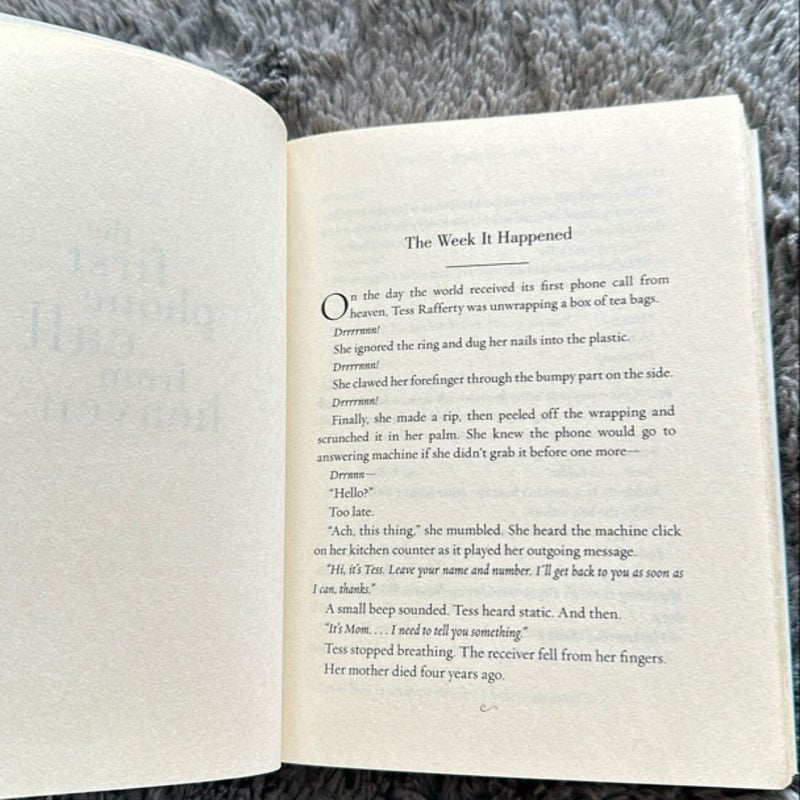 The Week It Happened
On the day the world received its first phone call from
heaven, Tess Rafferty was unwrapping a box of tea bags.
Drrrrnnn!
She ignored the ring and dug her nails into the plastic.
Drrrrnnn!
She clawed her forefinger through the bumpy part on the side.
Drrrrnnn!
Finally, she made a rip, then peeled off the wrapping and
scrunched it in her palm. She knew the phone would go to
answering machine if she didn't grab it before one more—
Drrnnn—
"Hello?"
Too late.
"Ach, this thing," she mumbled. She heard the machine click
on her kitchen counter as it played her outgoing message.
"Hi, it's Tess. Leave your name and number. I'll get back to you as soon as
I can, thanks."
A small beep sounded. Tess heard static. And then.
"It's Mom. . . . I need to tell you something."
Tess stopped breathing. The receiver fell from her fingers.
Her mother died four years ago.